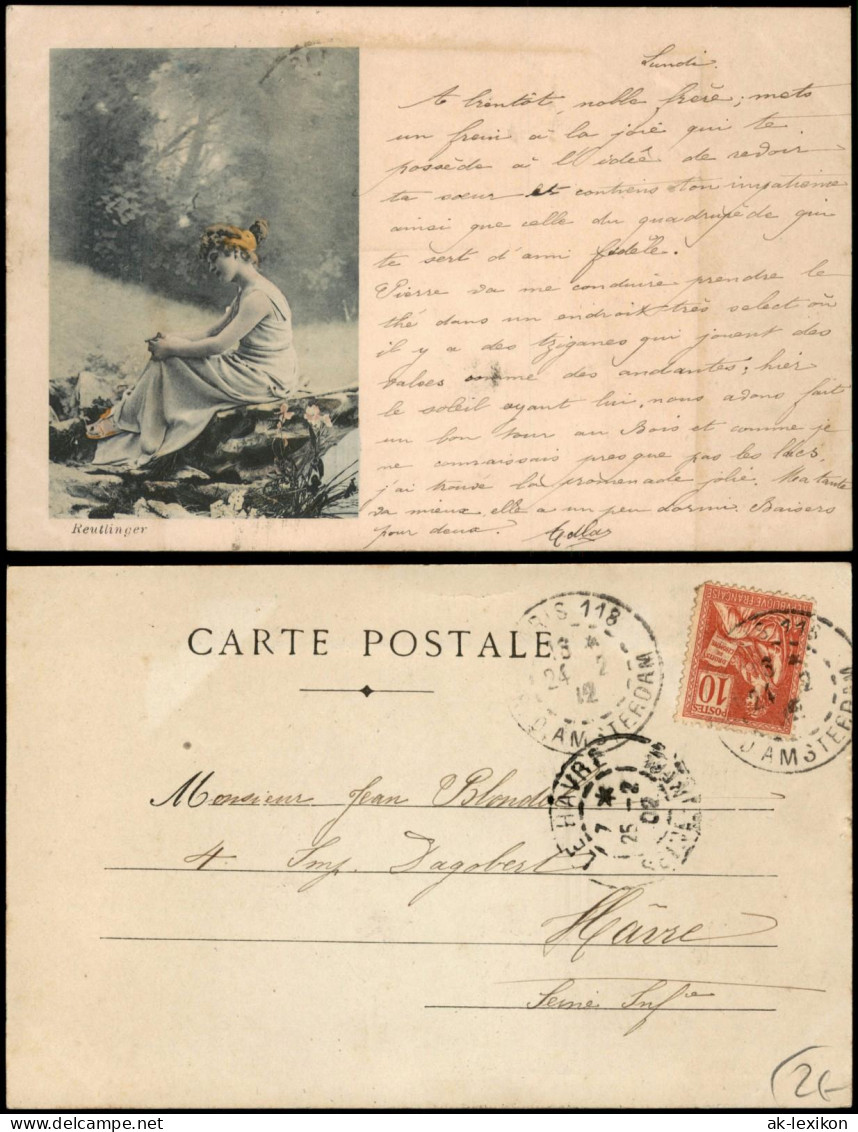 Lundi.
A bientôt, noble frère; mets
un frein à la joie qui te
possède à l'idée de revoir
ta sœur et contiens ton impatience
ainsi que celle du quadrupède qui
te sert d'ami fidèle.
Pierre va me conduire prendre le
thé dans un endroit très select où
il y a des tziganes qui jouent des
valses comme des andantes; hier
le soleil ayant lui, nous avons fait
un bon tour au Bois et comme je
ne connaissais presque pas les lacs,
j'ai trouvé la promenade jolie. Ma tante
va mieux, elle a un peu dormi. Baisers
pour deux.
Reutlinger
CARTE POSTALE
PARIS 118
24 2 12
AMSTERDAM
REPUBLIQUE FRANÇAISE
10
POSTES
AMSTERDAM
LE HAVRE
7 *
25 -2
02
Monsieur Jean Blondel
4 Imp. Dagobert
Hâvre
Seine Infre
2€
ak-lexikon.com